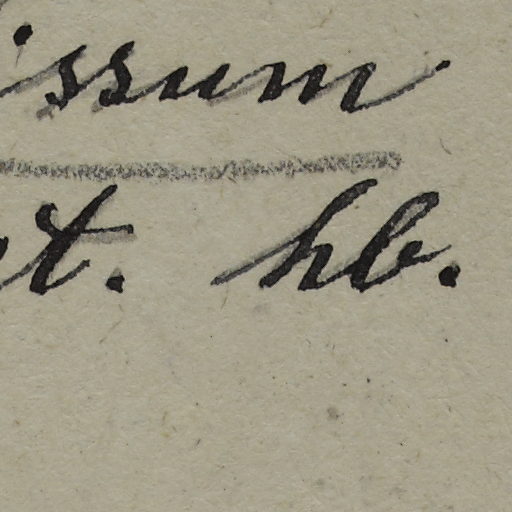 issum
t. hb.